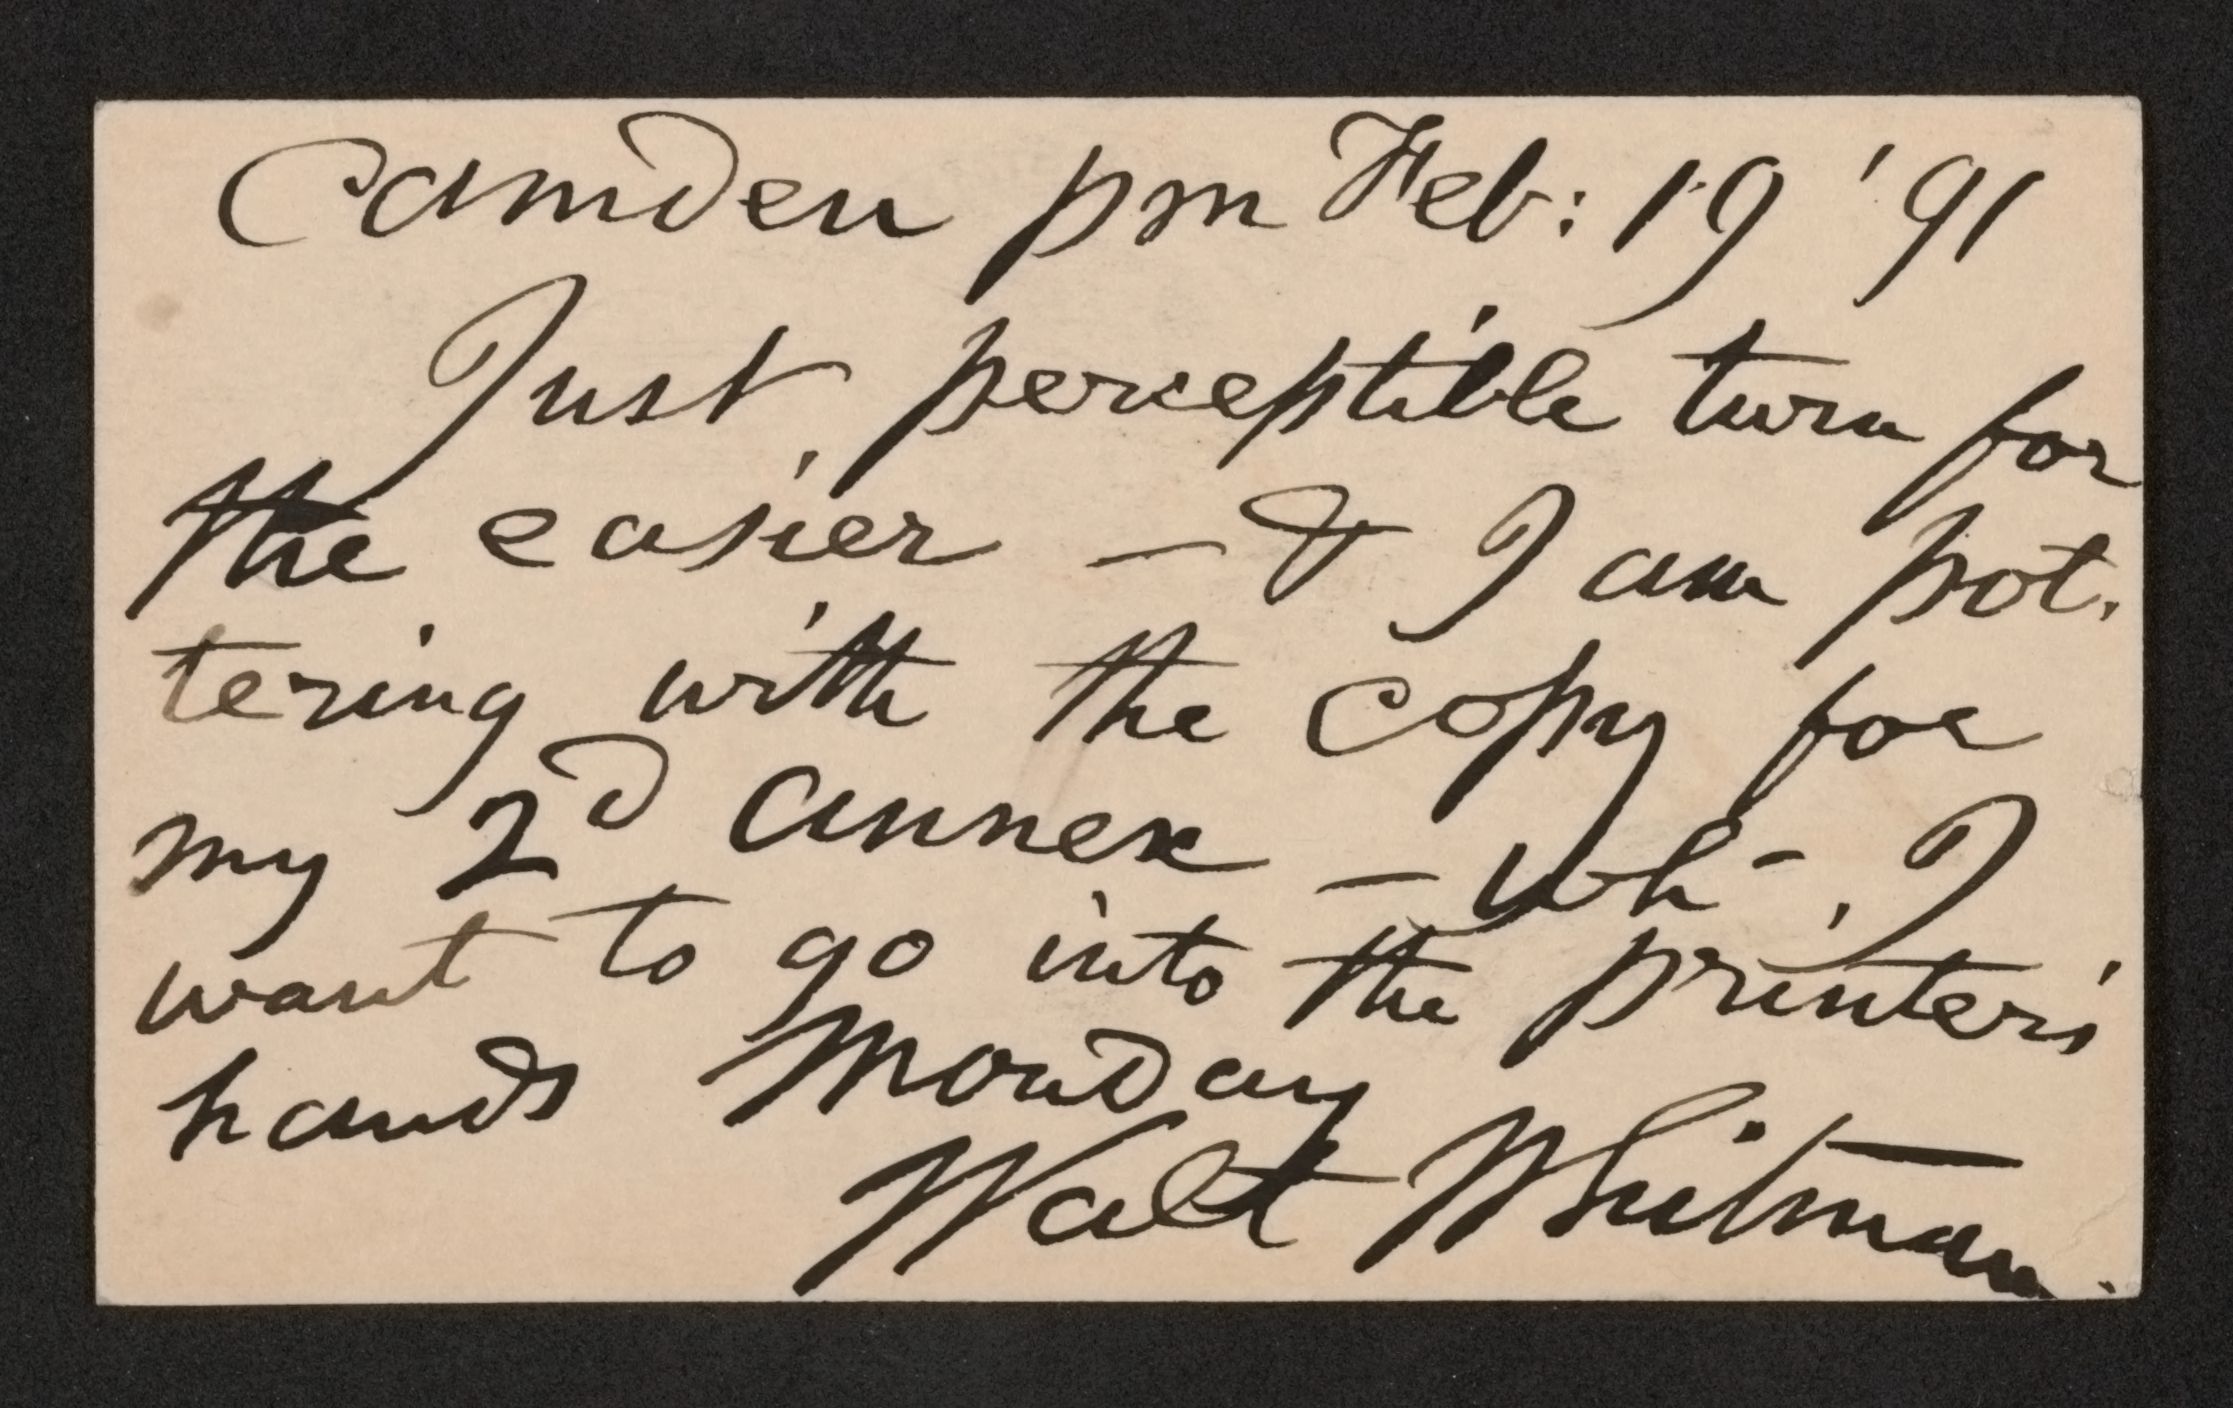 Camden pm Feb: 19 '91
Just perceptible turn for
the easier — & I am pot-
tering with the copy for
my 2d annex — wh- I
want to go into the printer's
hands Monday
Walt Whitman